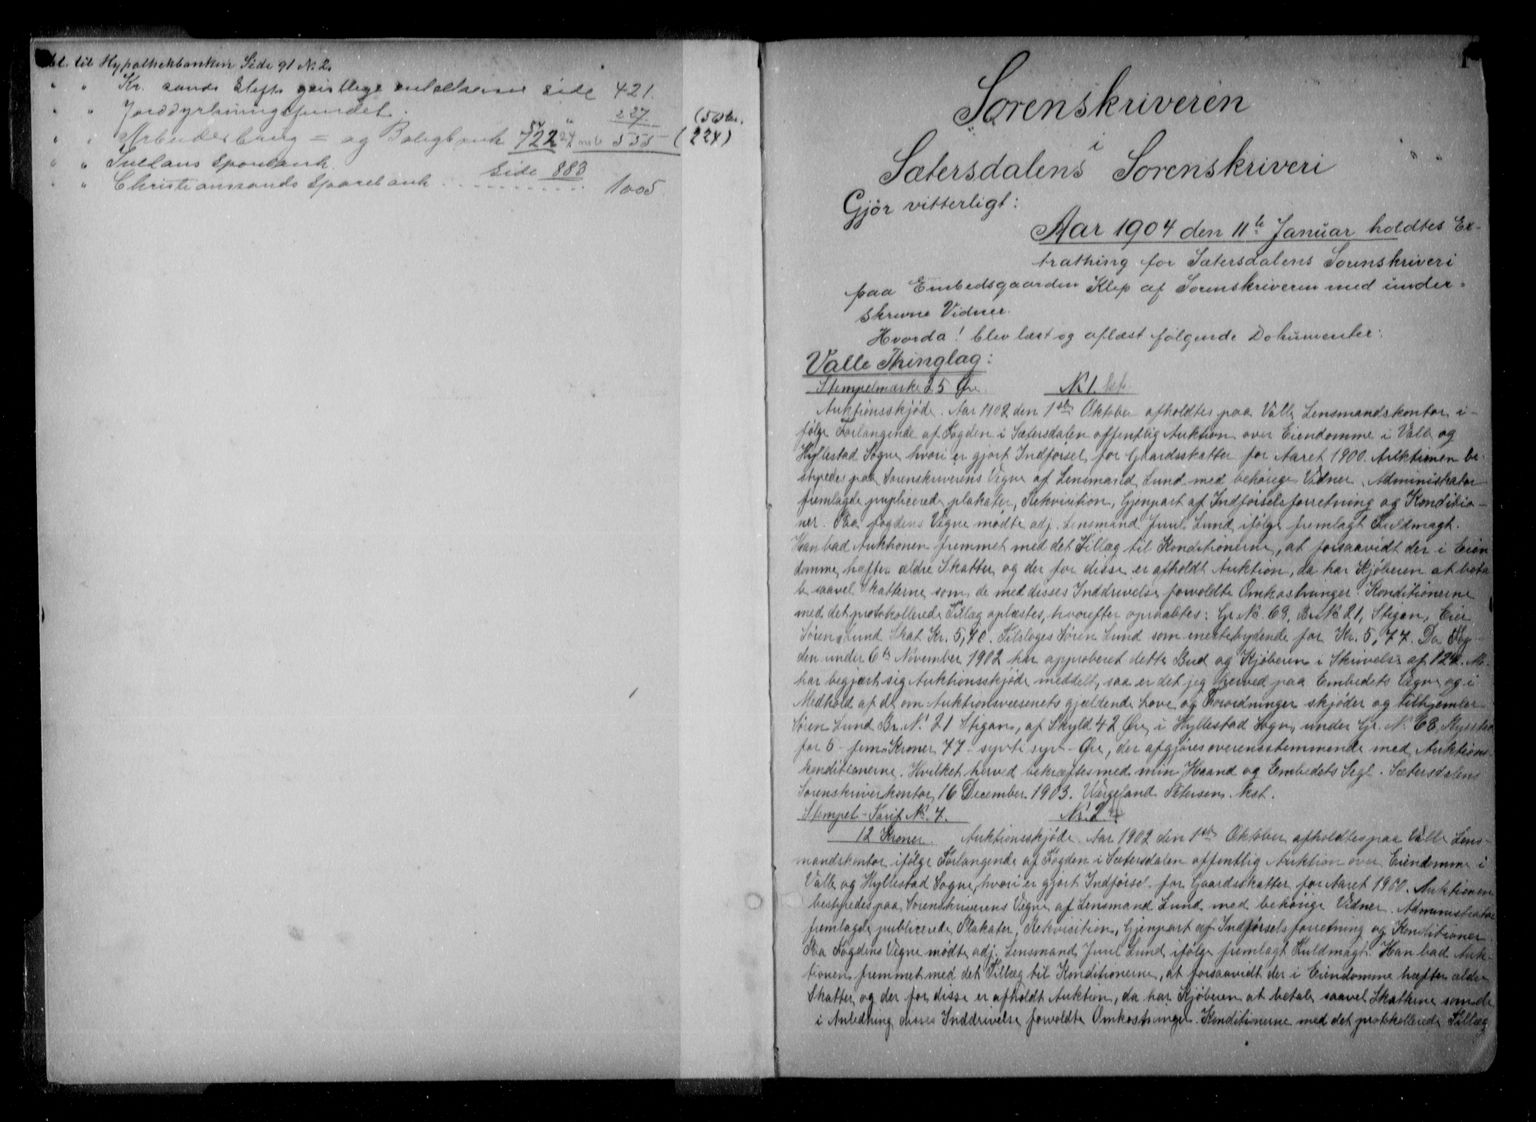 til Hypothekbanken Side 91 N. 2.
" " Kr. sands Stifts geistlige enkekasse side 421.
" " Jorddyrkningsfondet " 227. (50
" " Arbeiderbrug = og Boligbank 722 555 (224)
" " Sparebank Side 883
" " Christianssands Sparebank . . . . . . . . 1005
1
Sorenskriveren
i
Sætersdalens Sorenskriveri
Gjør vitterligt:
Aar 1904 den 11te Januar holdtes Ex-
trathing for Sætersdalens Sorenskriveri
paa Embedsgaarden Klep af Sorenskriveren med under-
skrevne Vidner.
Hvorda! blev læst og aflæst følgende Dokumenter:
Valle Thinglag:
Stempelmærke 25 Øre. N. 1.
Auktionsskjøde. Aar 1902 den 1ste Oktober afholdtes paa Valle Lensmandskontor i-
følge Forlangende af Fogden i Sætersdalen offentlig Auktion over Eiendomme i Valle og
Hyllestad Sogne, hvori er gjort Indførsel for Gaardsskatter for Aaret 1900. Auktionen be-
styredes paa Sorenskriverens Vegne af Lensmand Lund med behørige Vidner. Administrator
fremlagde publicerede plakater, Rekvisition, Gjenpart af Indførselsforretning og Konditio-
ner. Paa fogdens Vegne mødte adj. Lensmand Juul Lund ifølge fremlagt Fuldmagt.
Han bad Auktionen fremmet med det Tillæg til Konditionerne, at forsaavidt der i Eien
domme hæfter ældre Skatter og der for disse er afholdt Auktion, da har Kjøberen at beta
le saavel Skatterne som de med disses Inddrivelse forvoldte Omkostninger. Konditionerne
med det protokollerede Tillæg oplæstes, hvorefter opraabtes: Gr. N. 68, Br. N. 21, Stigan, Eier
Søren Lund Skat Kr. 5,40. Tilsloges Søren Lund som mestbydende for Kr. 5,77. Da Fog-
den under 6te November 1902 har approberet dette Bud og Kjøberen i Skrivelse af 12te
har begjært sig Auktionsskjøde meddelt, saa er det jeg herved paa Embedets Vegne og i
Medhold af de om Auktionsvæsenets gjældende Love og Forordninger skjøder og tilhjemler
Søren Lund Br. N. 21 Stigan, af Skyld 42 Øre, i Hyllestad Sogn, under Gr. N. 68
for 5 - fem - Kroner 77 - sytti syv - Øre, der afgjøres overensstemmende med Auktions
konditionerne. Hvilket herved bekræftes med min Haand og Embedets Segl. Sætersdalens
Sorenskriverkontor, 16 December 1903. Vergeland Petersen. Kst.
Stempel-Tarif N. 7. N. 2
12 Kroner. Auktionsskjøde. Aar 1902 den 1ste Oktober afholdtes paa Valle Lens-
mandskontor ifølge Forlangende af Fogden i Sætersdalen offentlig Auktion over Eiendomme i
Valle og Hyllestad Sogne, hvori er gjort Indførsel for Gaardsskatter for Aaret 1900. Auktionen
bestyredes paa Sorenskriverens Vegne af Lensmand Lund med behørige Vidner. Administrator
fremlagde publicerede Plakater, Rekvisition, Gjenpart af Indførselsforretning og Konditioner.
Paa Fogdens Vegne mødte adj. Lensmand Juul Lund ifølge fremlagt Fuldmagt. Han bad Auk-
tionen fremmet med det Tillæg til Konditionerne, at forsaavidt der i Eiendomme hæfter ældre
Skatter, og der for disse er afholdt Auktion, da har Kjøberen at betale saavel Skatterne som de
i Anledning disses Inddrivelse forvoldte Omkostninger. Konditionerne med det protokollerede Tillæg